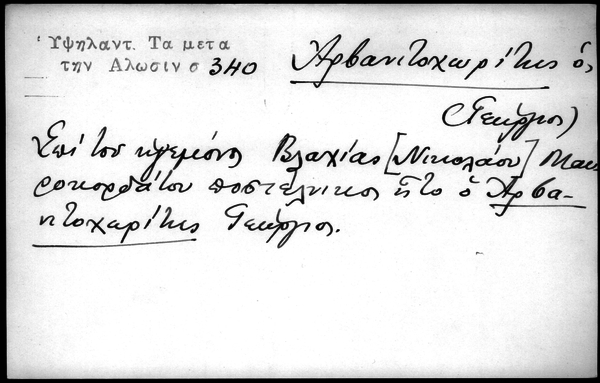 Ὑψηλαντ. Τα μετα
την Αλωσιν σ 340
Ἀρβανιτοχωρίτης ὁ
(Γεώργιος)
Ἐπί του ηγεμόνος Βλαχίας [Νικολάου] Μαυ
ροκορδάτου ποστέλνικος ἦτο ὁ Ἀρβα-
νιτοχωρίτης Γεώργιος.